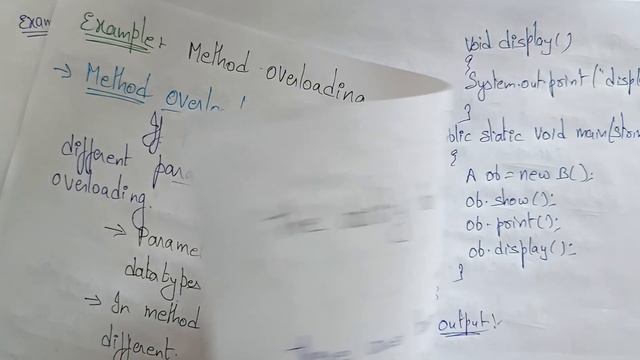 Example:
Method overloading
→ Method
If
different
overloading.
→
datatypes
→ In method
different.
void display()
{
System.out.print("displ
}
blic static void main(
{
A ob = new B();
ob.show();
ob.print();
ob.display();
}
output:-